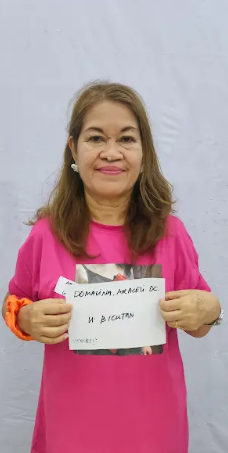 DOMALINA, ARACELI DC.
U BICUTAN